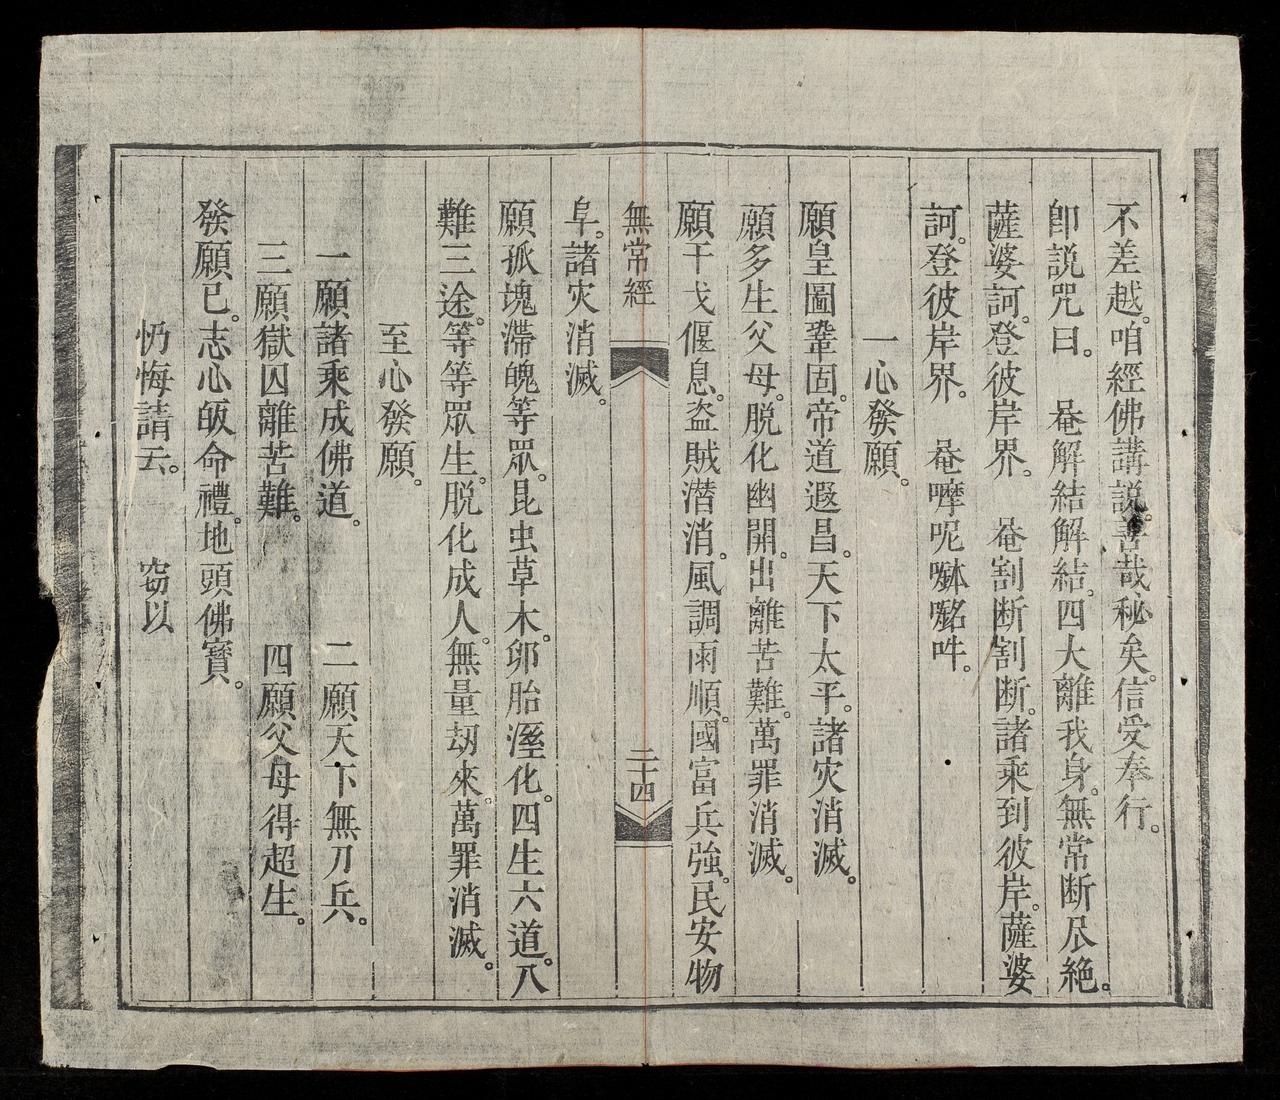 不差越。咱經佛講說。善哉秘矣。信受奉行。
卽説咒曰。　菴解結解結。四大離我身。無常断尽絶。
薩婆訶。登彼岸界。　菴割断割断。諸乘到彼岸。薩婆
訶。登彼岸界。　菴嚤呢㖿㗊吽。
一心發願。
願皇圖鞏固。帝道遐昌。天下太平。諸灾消滅。
願多生父母。脱化幽開。出離苦難。萬罪消滅。
願干戈偃息。盗賊潛消。風調雨順。國富兵強。民安物
無常經　二十四
阜。諸灾消滅。
願孤塊滯魄等眾。昆虫草木。卵胎溼化。四生六道。八
難三途。等等眾生。脱化成人。無量刧來。萬罪消滅。
至心發願。
一願諸乘成佛道。　二願天下無刀兵。
三願獄囚離苦難。　四願父母得超生。
發願已。志心皈命禮。地頭佛寶。
忉悔請云。　窃以